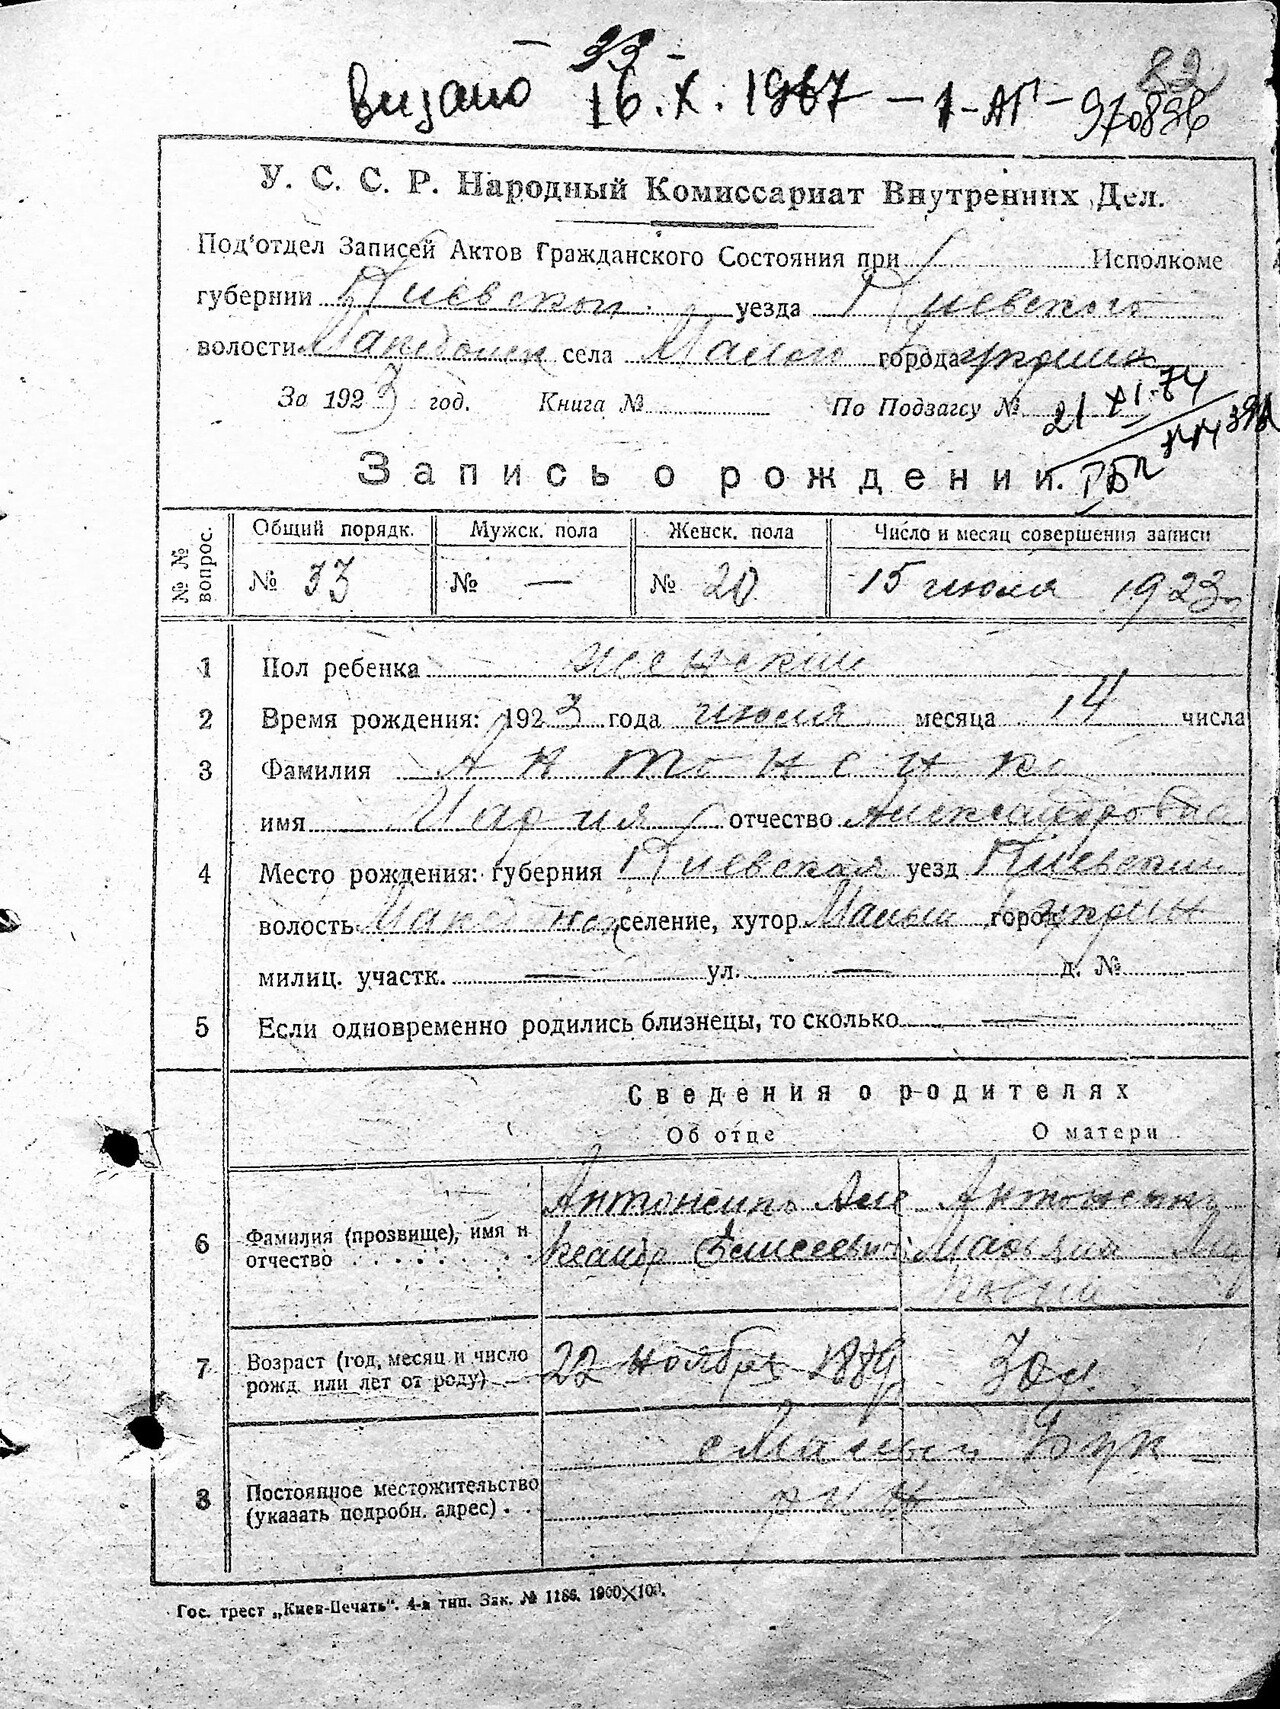 33
82
Видано 16.X.1967 — 1-АГ-970896
У. С. С. Р. Народный Комиссариат Внутренних Дел.
Под'отдел Записей Актов Гражданского Состояния при Исполкоме
губернии Киевской уезда Киевского
волости села Малого города Букрина
За 1923 год. Книга № По Подзагсу №
21 XI-74
Запись о рождении.
№№ вопрос. Общий порядк. Мужск. пола Женск. пола Число и месяц совершения записи
№ 33 № — № 20 15 июля 1923 г
1 Пол ребенка женский
2 Время рождения: 1923 года июля месяца 14 числа
3 Фамилия Антоненко
имя Мария отчество Александровна
4 Место рождения: губерния Киевская уезд Киевский
волость селение, хутор Малый город Букрин
милиц. участк. — ул. — д. №
5 Если одновременно родились близнецы, то сколько —
Сведения о родителях
Об отце О матери
6 Фамилия (прозвище), имя и отчество
Антоненко Але
ксандр Елисеевич
Антоненко
7 Возраст (год, месяц и число рожд. или лет от роду)
22 ноября 1889
30 л.
8 Постоянное местожительство (указать подробн. адрес)
с Малый Бук-
рин
Гос. трест „Киев-Печать". 4-я тип. Зак. № 1186. 1900×100.